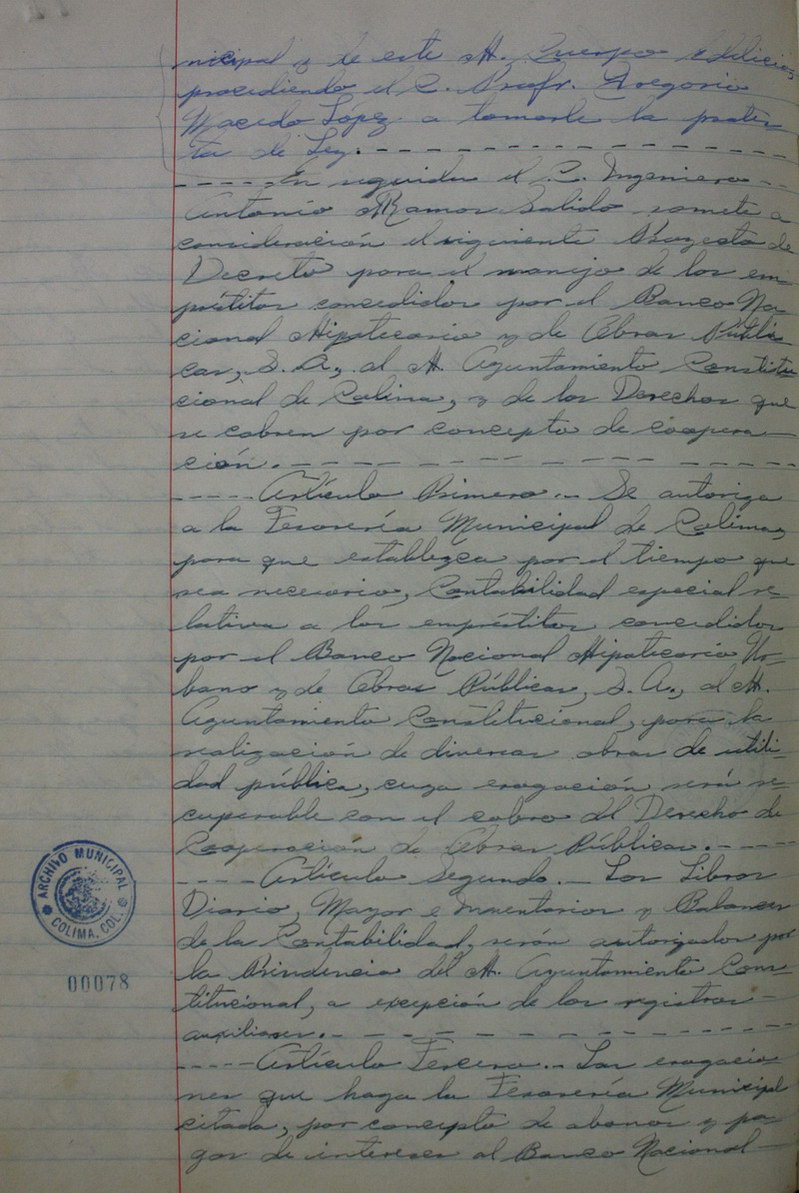 nicipal y de este H. Cuerpo Edilicio,
procediendo el C. Profr. Gregorio
Macedo López a tomarle la protes-
ta de Ley.-----------
-----En seguida el C. Ingeniero--
Antonio Ramos Salido somete a
consideración el siguiente Proyecto de
Decreto para el manejo de los em-
préstitos concedidos por el Banco Na-
cional Hipotecario y de Obras Públi-
cas, S. A., al H. Ayuntamiento Constitu-
cional de Colima, y de los Derechos que
se cobren por concepto de coopera-
ción.-----------
-----Artículo Primero.- Se autoriza
a la Tesorería Municipal de Colima,
para que establezca por el tiempo que
sea necesario, Contabilidad especial re-
lativa a los empréstitos concedidos
por el Banco Nacional Hipotecario Ur-
bano y de Obras Públicas, S. A., al H.
Ayuntamiento Constitucional, para la
realización de diversas obras de utili-
dad pública, cuya erogación será re-
cuperable con el cobro del Derecho de
Cooperación de Obras Públicas.-----
----Artículo Segundo.- Los Libros
Diario, Mayor e Inventarios y Balances
de la Contabilidad, serán autorizados por
la Presidencia del H. Ayuntamiento Cons-
titucional, a excepción de los registros-
auxiliares.-----------
-----Artículo Tercero.- Las erogacio-
nes que haga la Tesorería Municipal
citada, por concepto de abonos y pa-
gos de intereses al Banco Nacional-
ARCHIVO MUNICIPAL
COLIMA, COL.
00078